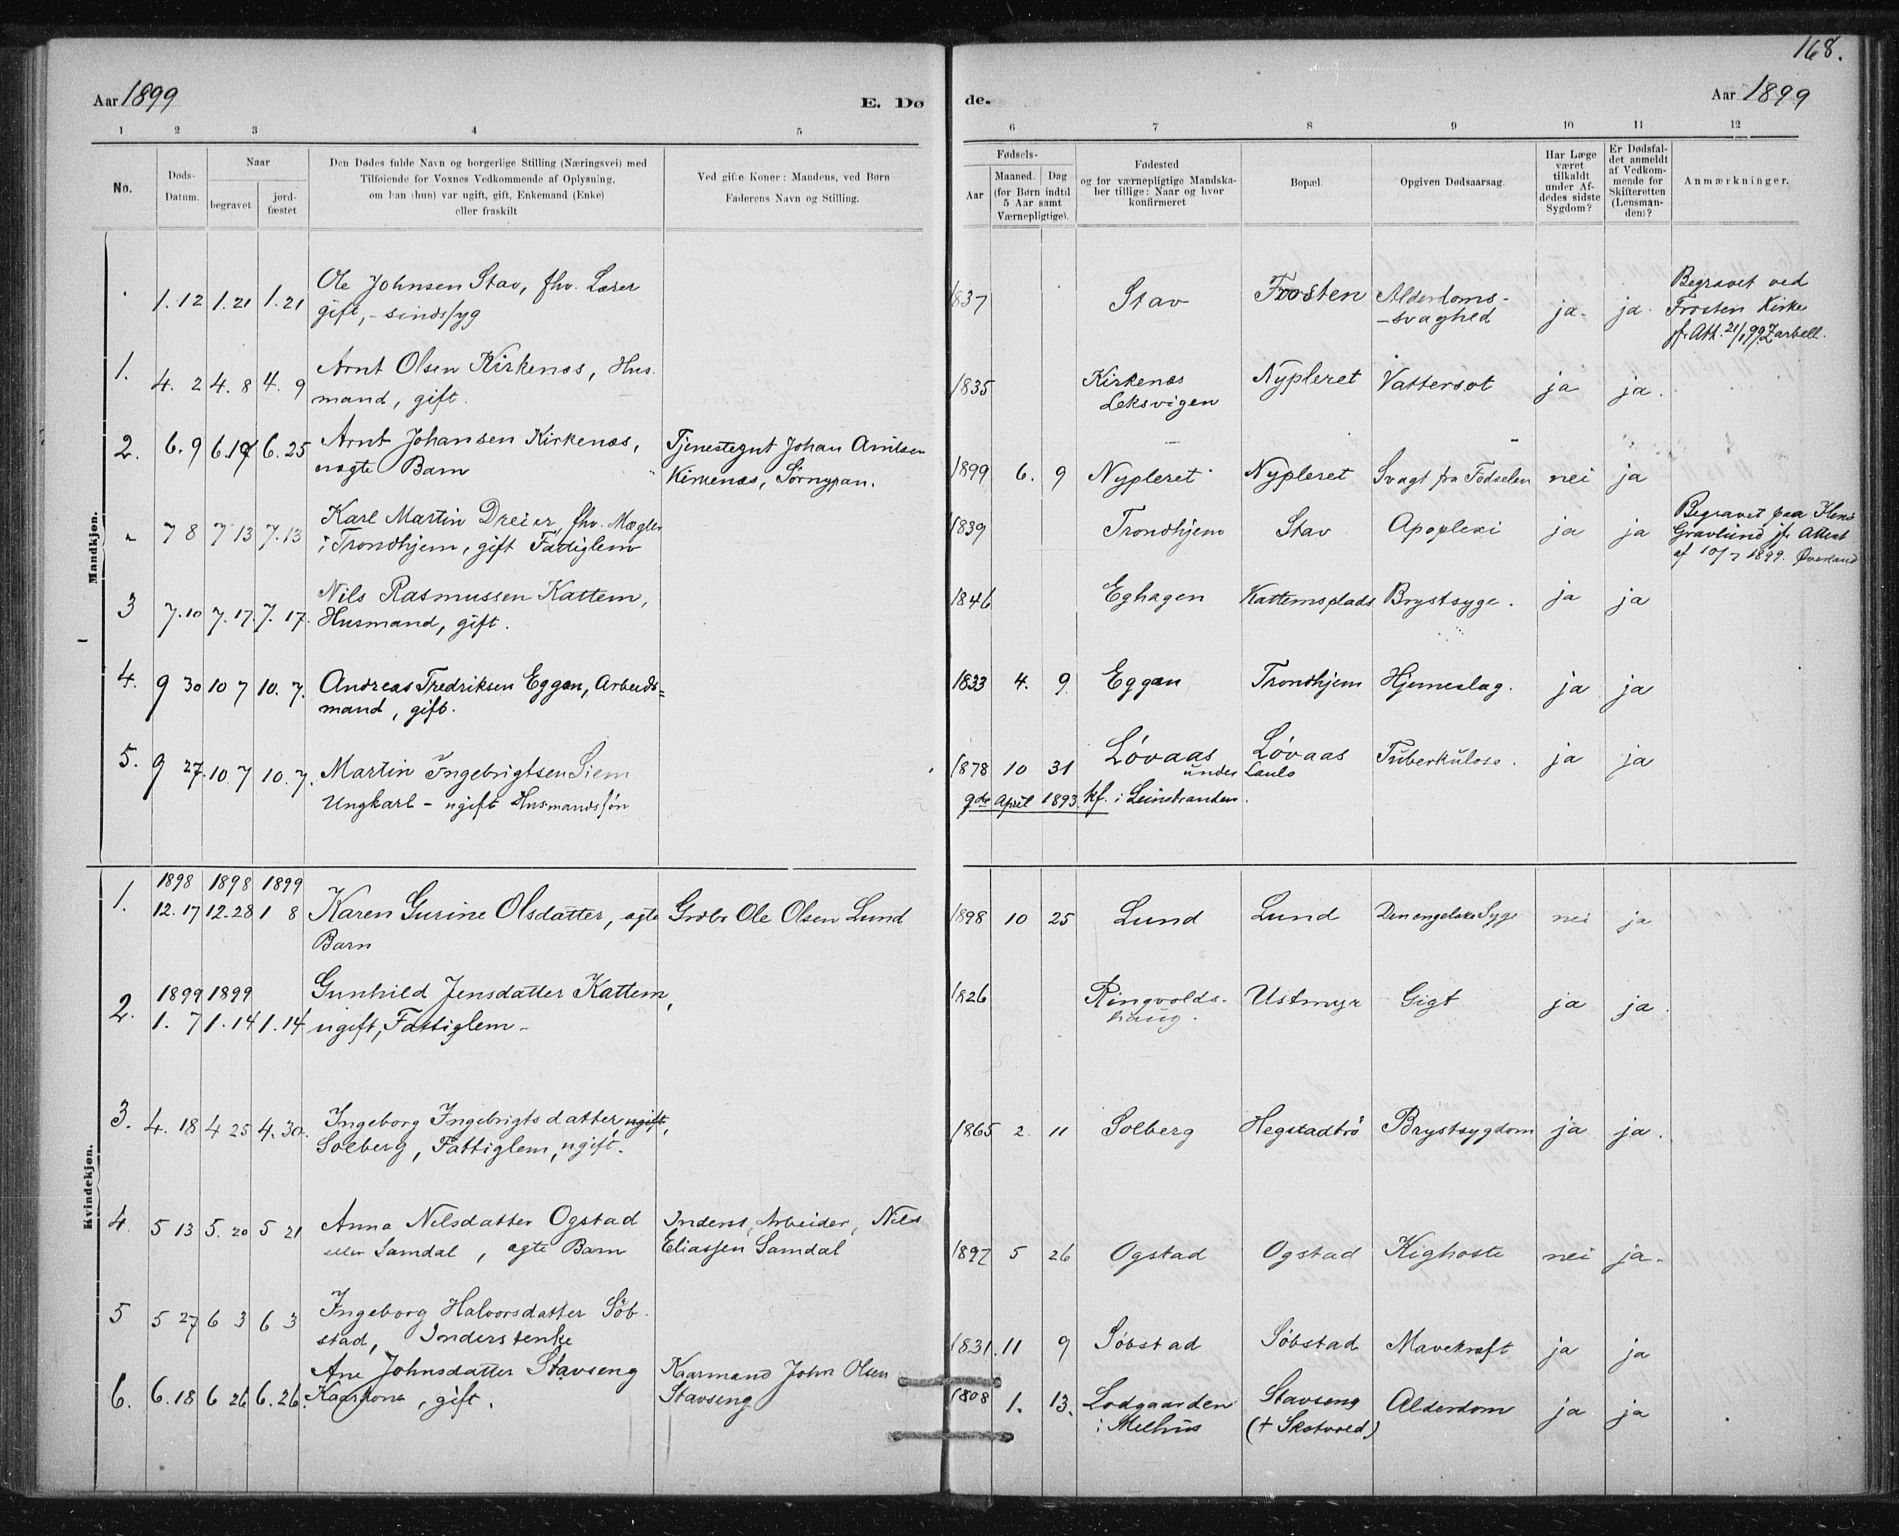 168.
Aar 1899 E. Dø de. Aar 1899
1 2 3 4 5 6 7 8 9 10 11 12
No.
Døds-Datum.
Naar
begravet
jord-fæstet
Den Dødes fulde Navn og borgerlige Stilling (Næringsvei) med
Tilføiende for Voxnes Vedkommende af Oplysning,
om han (hun) var ugift, gift, Enkemand (Enke)
eller fraskilt
Ved gifte Koner: Mandens, ved Børn
Faderens Navn og Stilling.
Fødsels-
Aar
Maaned. Dag
(for Børn indtil
5 Aar samt
Værnepligtige).
Fødested
og for værnepligtige Mandska-
ber tillige: Naar og hvor
konfirmeret
Bopæl.
Opgiven Dødsaarsag.
Har Læge
været
tilkaldt
under Af-
dødes sidste
Sygdom?
Er Dødsfal-
det anmeldt
af Vedkom-
mende for
Skifteretten
(Lensman-
den)?
Anmærkninger.
Mandkjøn.
1.12 1.21 1.21 Ole Johnsen Stav, fhv. Lærer
gift, - sindssyg
1837 Stav Frosten Alderdoms-
-svaghed ja. ja.
Begravet ved
Frosten Kirke
jf. Att. 21/1 99. Zarbell.
1. 4. 2 4. 8 4. 9 Arnt Olsen Kirkenæs, Hus-
mand, gift.
1835 Kirkenæs
Leksvigen Nypleret Vattersot ja ja.
2. 6. 9 6.19 6. 25 Arnt Johansen Kirkenæs,
uægte Barn
Tjenestegut Johan Arntsen
Kirkenæs, Sørnypan.
1899 6. 9 Nypleret Nypleret Svagt fra Fødselen nei ja
" 7 8 7 13 7.13 Karl Martin Dreier, fhv. Mægler
i Trondhjem, gift Fattiglem
1839 Trondhjem Stav Apoplexi ja ja
Begravet paa
Gravlund jf. Attest
af 10/7 1899. Øverland
3 7.10 7. 17. 7. 17. Nils Rasmussen Kattem,
Husmand, gift.
1846 Eghagen Kattemsplads Brystsyge. ja ja
4. 9 30 10 7 10. 7. Andreas Fredriksen Eggan, Arbeids=
mand, gift.
1833 4. 9. Eggan Trondhjem Hjerneslag. ja ja
5. 9 27. 10 7 10. 7. Martin Ingebrigtsen Siem
Ungkarl - ugift Husmandssøn
1878 10 31 Løvaas
under Løvaas
Laulo Tuberkulose. ja ja
9de April 1893. kf. i Leinstranden.
Kvindekjøn.
1. 1898 1898 1899
12. 17 12. 28 1 8 Karen Gurine Olsdatter, ægte
Barn
Grdbr Ole Olsen Lund
1898 10 25 Lund Lund Den engelske Syge nei ja
2. 1899 1899
1. 7 1. 14 1. 14 Gunhild Jensdatter Kattem,
ugift, Fattiglem.
1826 Ringvolds-
haug. Ustmyr Gigt ja ja.
3. 4. 18 4 25 4. 30. Ingeborg Ingebrigtsdatter, ugift,
Solberg, Fattiglem, ugift.
1865 2. 11 Solberg Hegstadtrø Brystsygdom ja ja.
4. 5 13 5. 20 5 21 Anna Nilsdatter Ogstad
eller Samdal, ægte Barn
Inderst, Arbeider, Nils
Eliassen Samdal
1897 5 26 Ogstad Ogstad Kighoste nei ja.
5 5 27 6 3 6 3 Ingeborg Halvorsdatter Søb-
stad, Inderstenke
1831. 11 9 Søbstad Søbstad Mavekræft ja ja
6. 6. 18 6 26 6. 26. Ane Johnsdatter Stavseng
Kaarkone, gift.
Kaarmand John Olsen
Stavseng
1808 1. 13. Lodgaarden
i Melhus Stavseng
(+ Skotvold) Alderdom ja ja